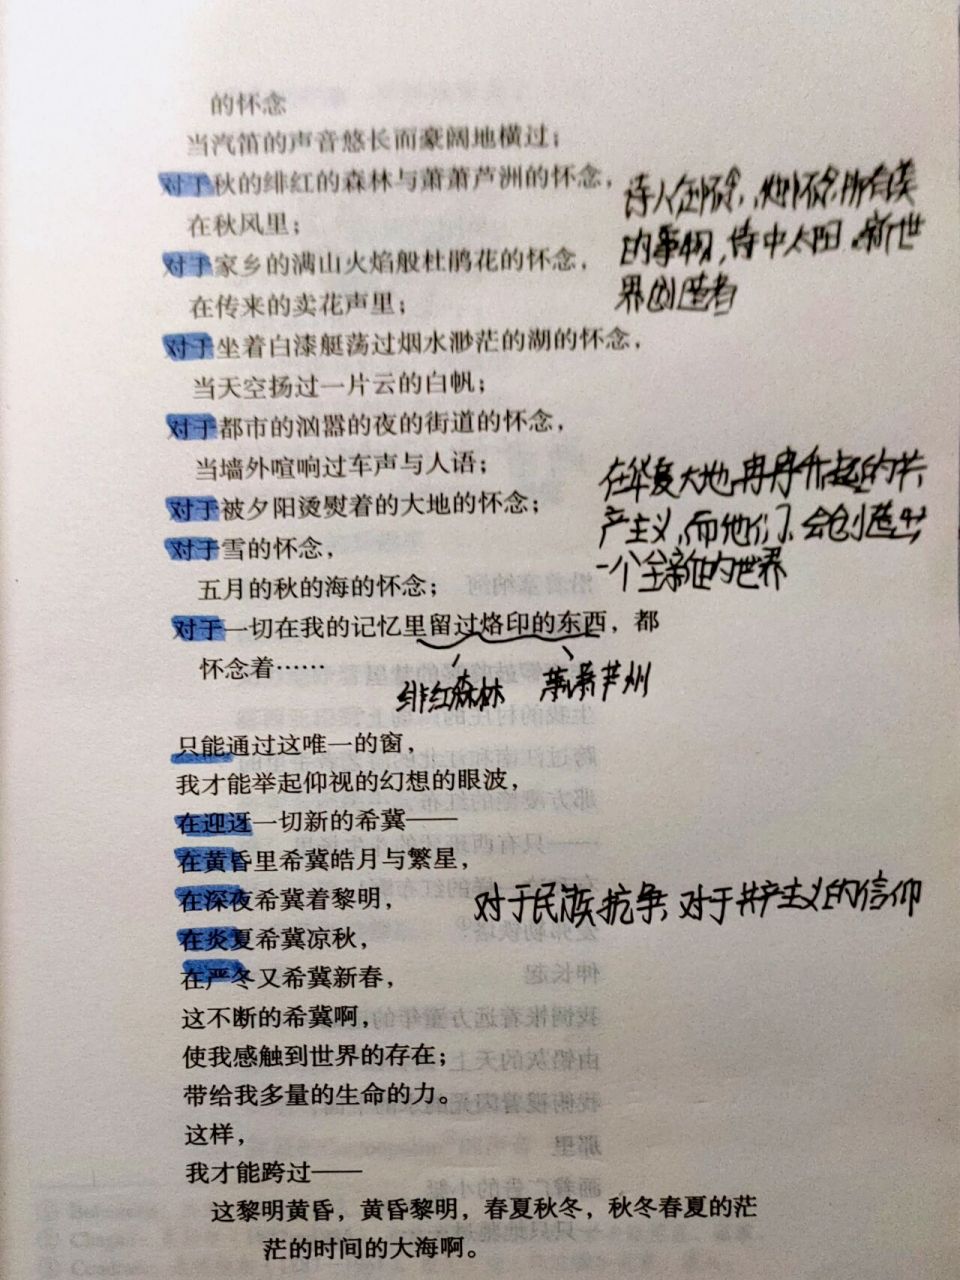 的怀念
当汽笛的声音悠长而豪阔地横过；
对于秋的绯红的森林与萧萧芦洲的怀念，
在秋风里；
对于家乡的满山火焰般杜鹃花的怀念，
在传来的卖花声里；
对于坐着白漆艇荡过烟水渺茫的湖的怀念，
当天空扬过一片云的白帆；
对于都市的汹嚣的夜的街道的怀念，
当墙外喧响过车声与人语；
对于被夕阳烫熨着的大地的怀念；
对于雪的怀念，
五月的秋的海的怀念；
对于一切在我的记忆里留过烙印的东西，都
怀念着……
诗人在怀念，怀念所有美
的事物，诗中太阳，新世
界创造者
在华夏大地冉冉升起的共
产主义，而他们，会创造出
一个全新的世界
绯红森林
萧萧芦州
只能通过这唯一的窗，
我才能举起仰视的幻想的眼波，
在迎迓一切新的希冀——
在黄昏里希冀皓月与繁星，
在深夜希冀着黎明，
在炎夏希冀凉秋，
在严冬又希冀新春，
对于民族抗争，对于共产主义的信仰
这不断的希冀啊，
使我感触到世界的存在；
带给我多量的生命的力。
这样，
我才能跨过——
这黎明黄昏，黄昏黎明，春夏秋冬，秋冬春夏的茫
茫的时间的大海啊。